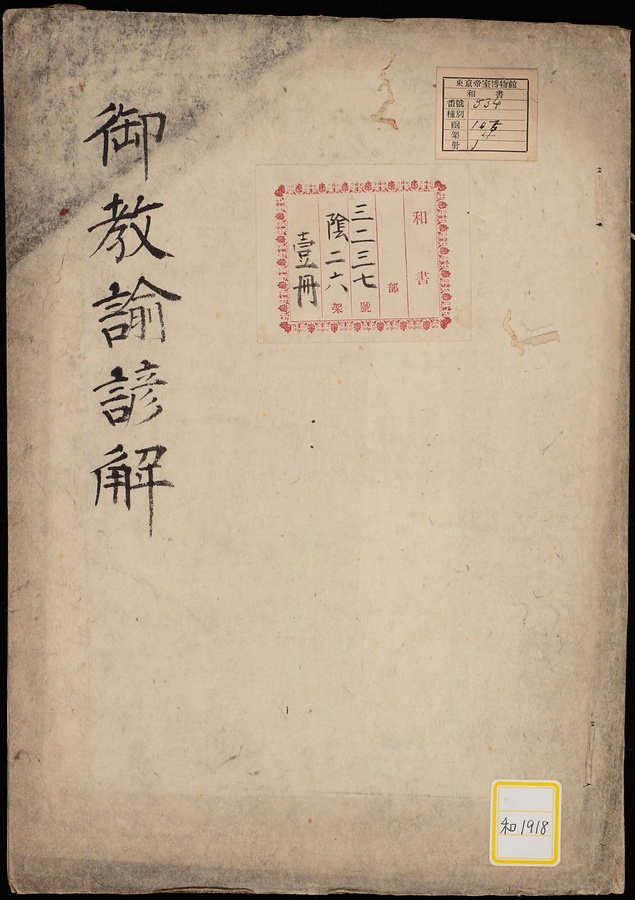 東京帝室博物館
和書
番號 834
種別
函
架 4
冊 1
和書
部
三二三七號
陰二六架
壹冊
御教諭諺解
和1918